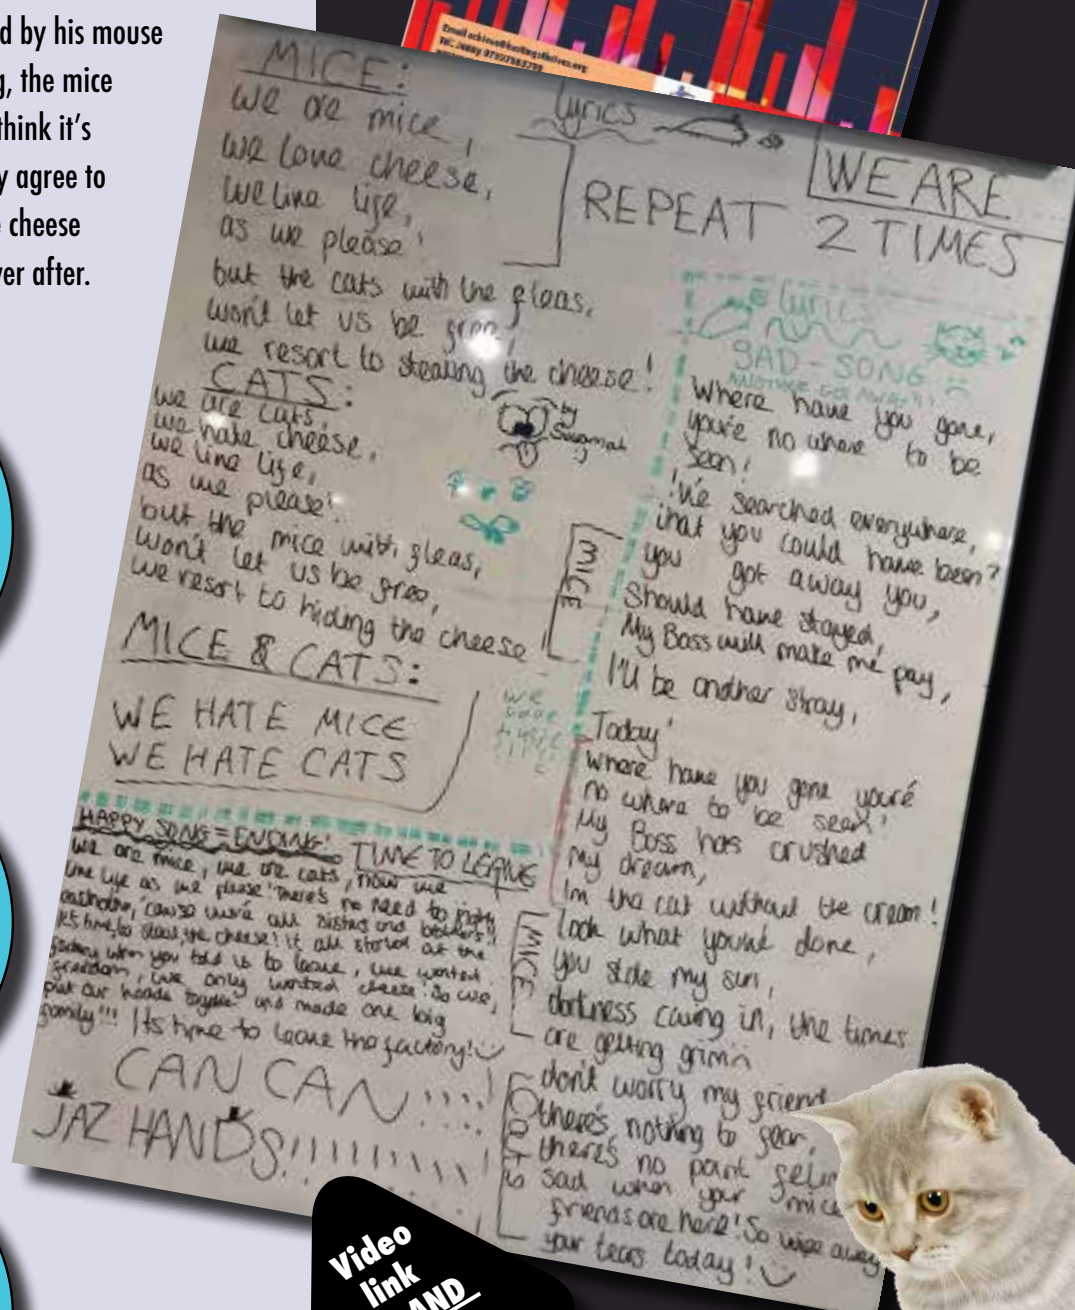 d by his mouse
g, the mice
think it's
y agree to
e cheese
ver after.
MICE:
we are mice,
we love cheese,
we live life,
as we please!
but the cats with the fleas,
won't let us be free,
we resort to stealing the cheese!
lyrics
WE ARE
REPEAT 2 TIMES
CATS:
we are cats,
we hate cheese,
we live life,
as we please!
but the mice with fleas,
won't let us be free,
we resort to hiding the cheese!
by
MICE & CATS:
WE HATE MICE
WE HATE CATS
we
HAPPY SONG = ENDING!
TIME TO LEAVE
we are mice, we are cats, now we
live life as we please! There's no need to fight
eachother, 'cause we're all sisters and brothers!
it's time to steal the cheese! it all started at the
factory when you told us to leave, we wanted
freedom, we only wanted cheese! So we,
put our heads together and made one big
family!!! Its time to leave the factory!
CAN CAN
JAZ HANDS!!!!!!!!!!
lyrics
SAD - SONG
Where have you gone,
you're no where to be
seen!
I've searched everywhere,
that you could have been?
you got away you,
Should have stayed,
My Boss will make me pay,
I'll be another stray,
Today!
MICE
where have you gone you're
no where to be seen!
My Boss has crushed
my dream,
Im the cat without the cream!
look what you've done,
you stole my sun,
darkness caving in, the times
are getting grim
MICE
don't worry my friend
there's nothing to fear,
there's no point
sad when your mice
friends are here! So wipe away
your tears today!
Video
link
AND